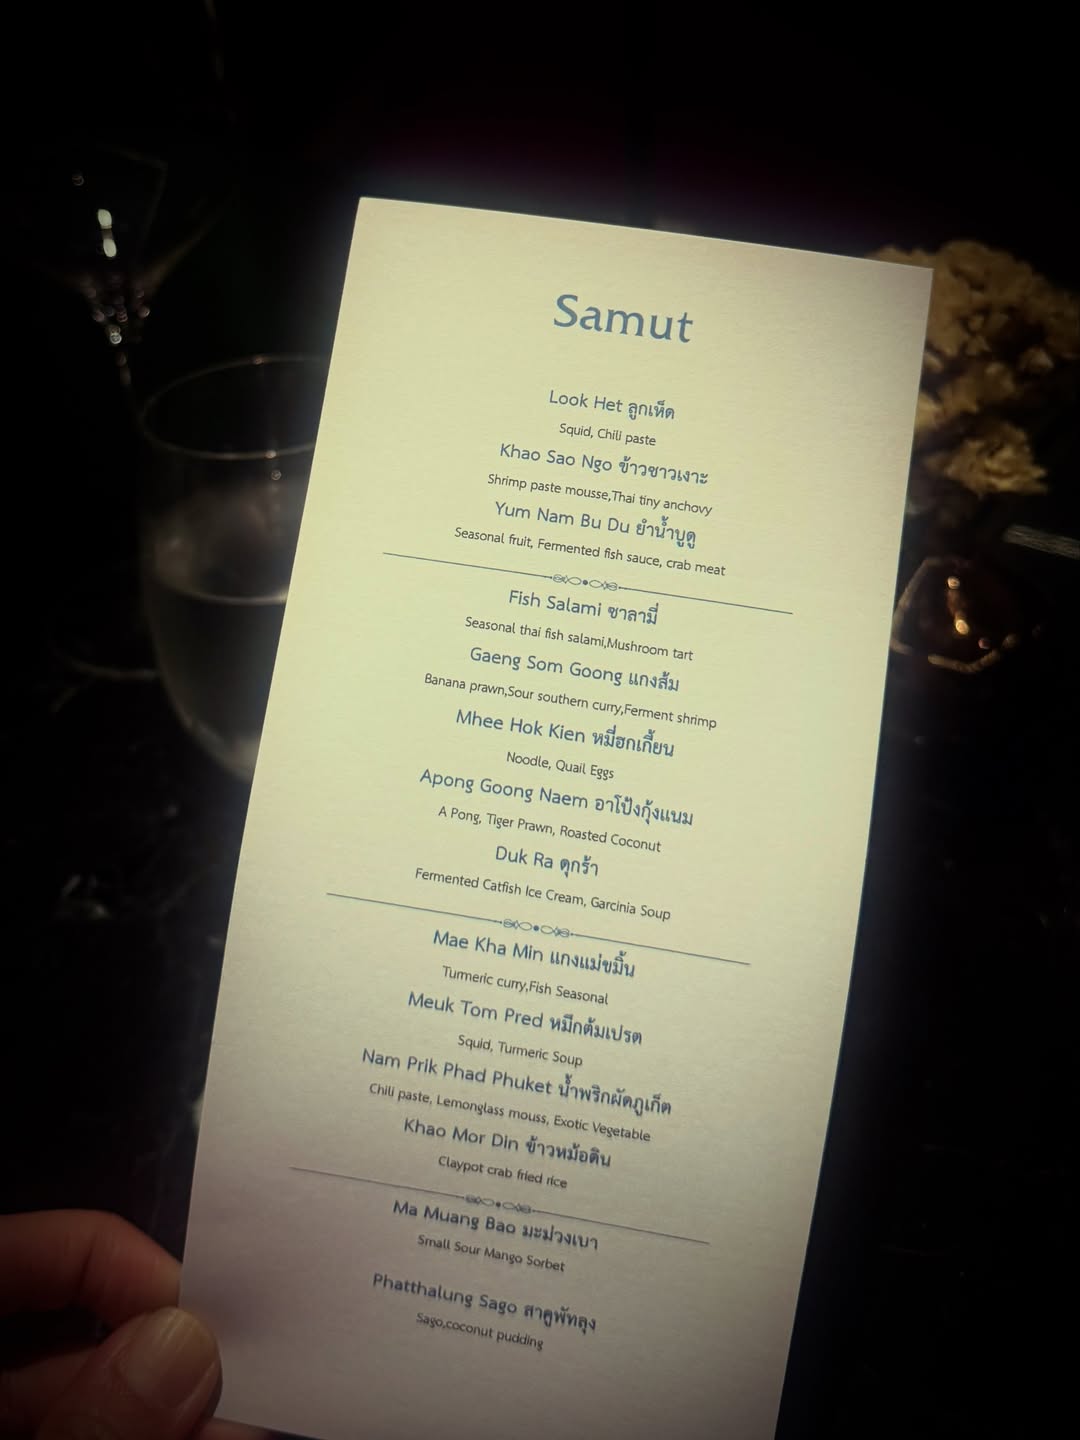 Samut
Look Het ลูกเห็ด
Squid, Chili paste
Khao Sao Ngo ข้าวซาวเงาะ
Shrimp paste mousse,Thai tiny anchovy
Yum Nam Bu Du ยำน้ำบูดู
Seasonal fruit, Fermented fish sauce, crab meat
Fish Salami ซาลามี่
Seasonal thai fish salami,Mushroom tart
Gaeng Som Goong แกงส้ม
Banana prawn,Sour southern curry,Ferment shrimp
Mhee Hok Kien หมี่ฮกเกี้ยน
Noodle, Quail Eggs
Apong Goong Naem อาโป้งกุ้งแนม
A Pong, Tiger Prawn, Roasted Coconut
Duk Ra ดุกร้า
Fermented Catfish Ice Cream, Garcinia Soup
Mae Kha Min แกงแม่ขมิ้น
Turmeric curry,Fish Seasonal
Meuk Tom Pred หมึกต้มเปรต
Squid, Turmeric Soup
Nam Prik Phad Phuket น้ำพริกผัดภูเก็ต
Chili paste, Lemonglass mouss, Exotic Vegetable
Khao Mor Din ข้าวหม้อดิน
Claypot crab fried rice
Ma Muang Bao มะม่วงเบา
Small Sour Mango Sorbet
Phatthalung Sago สาคูพัทลุง
Sago,coconut pudding